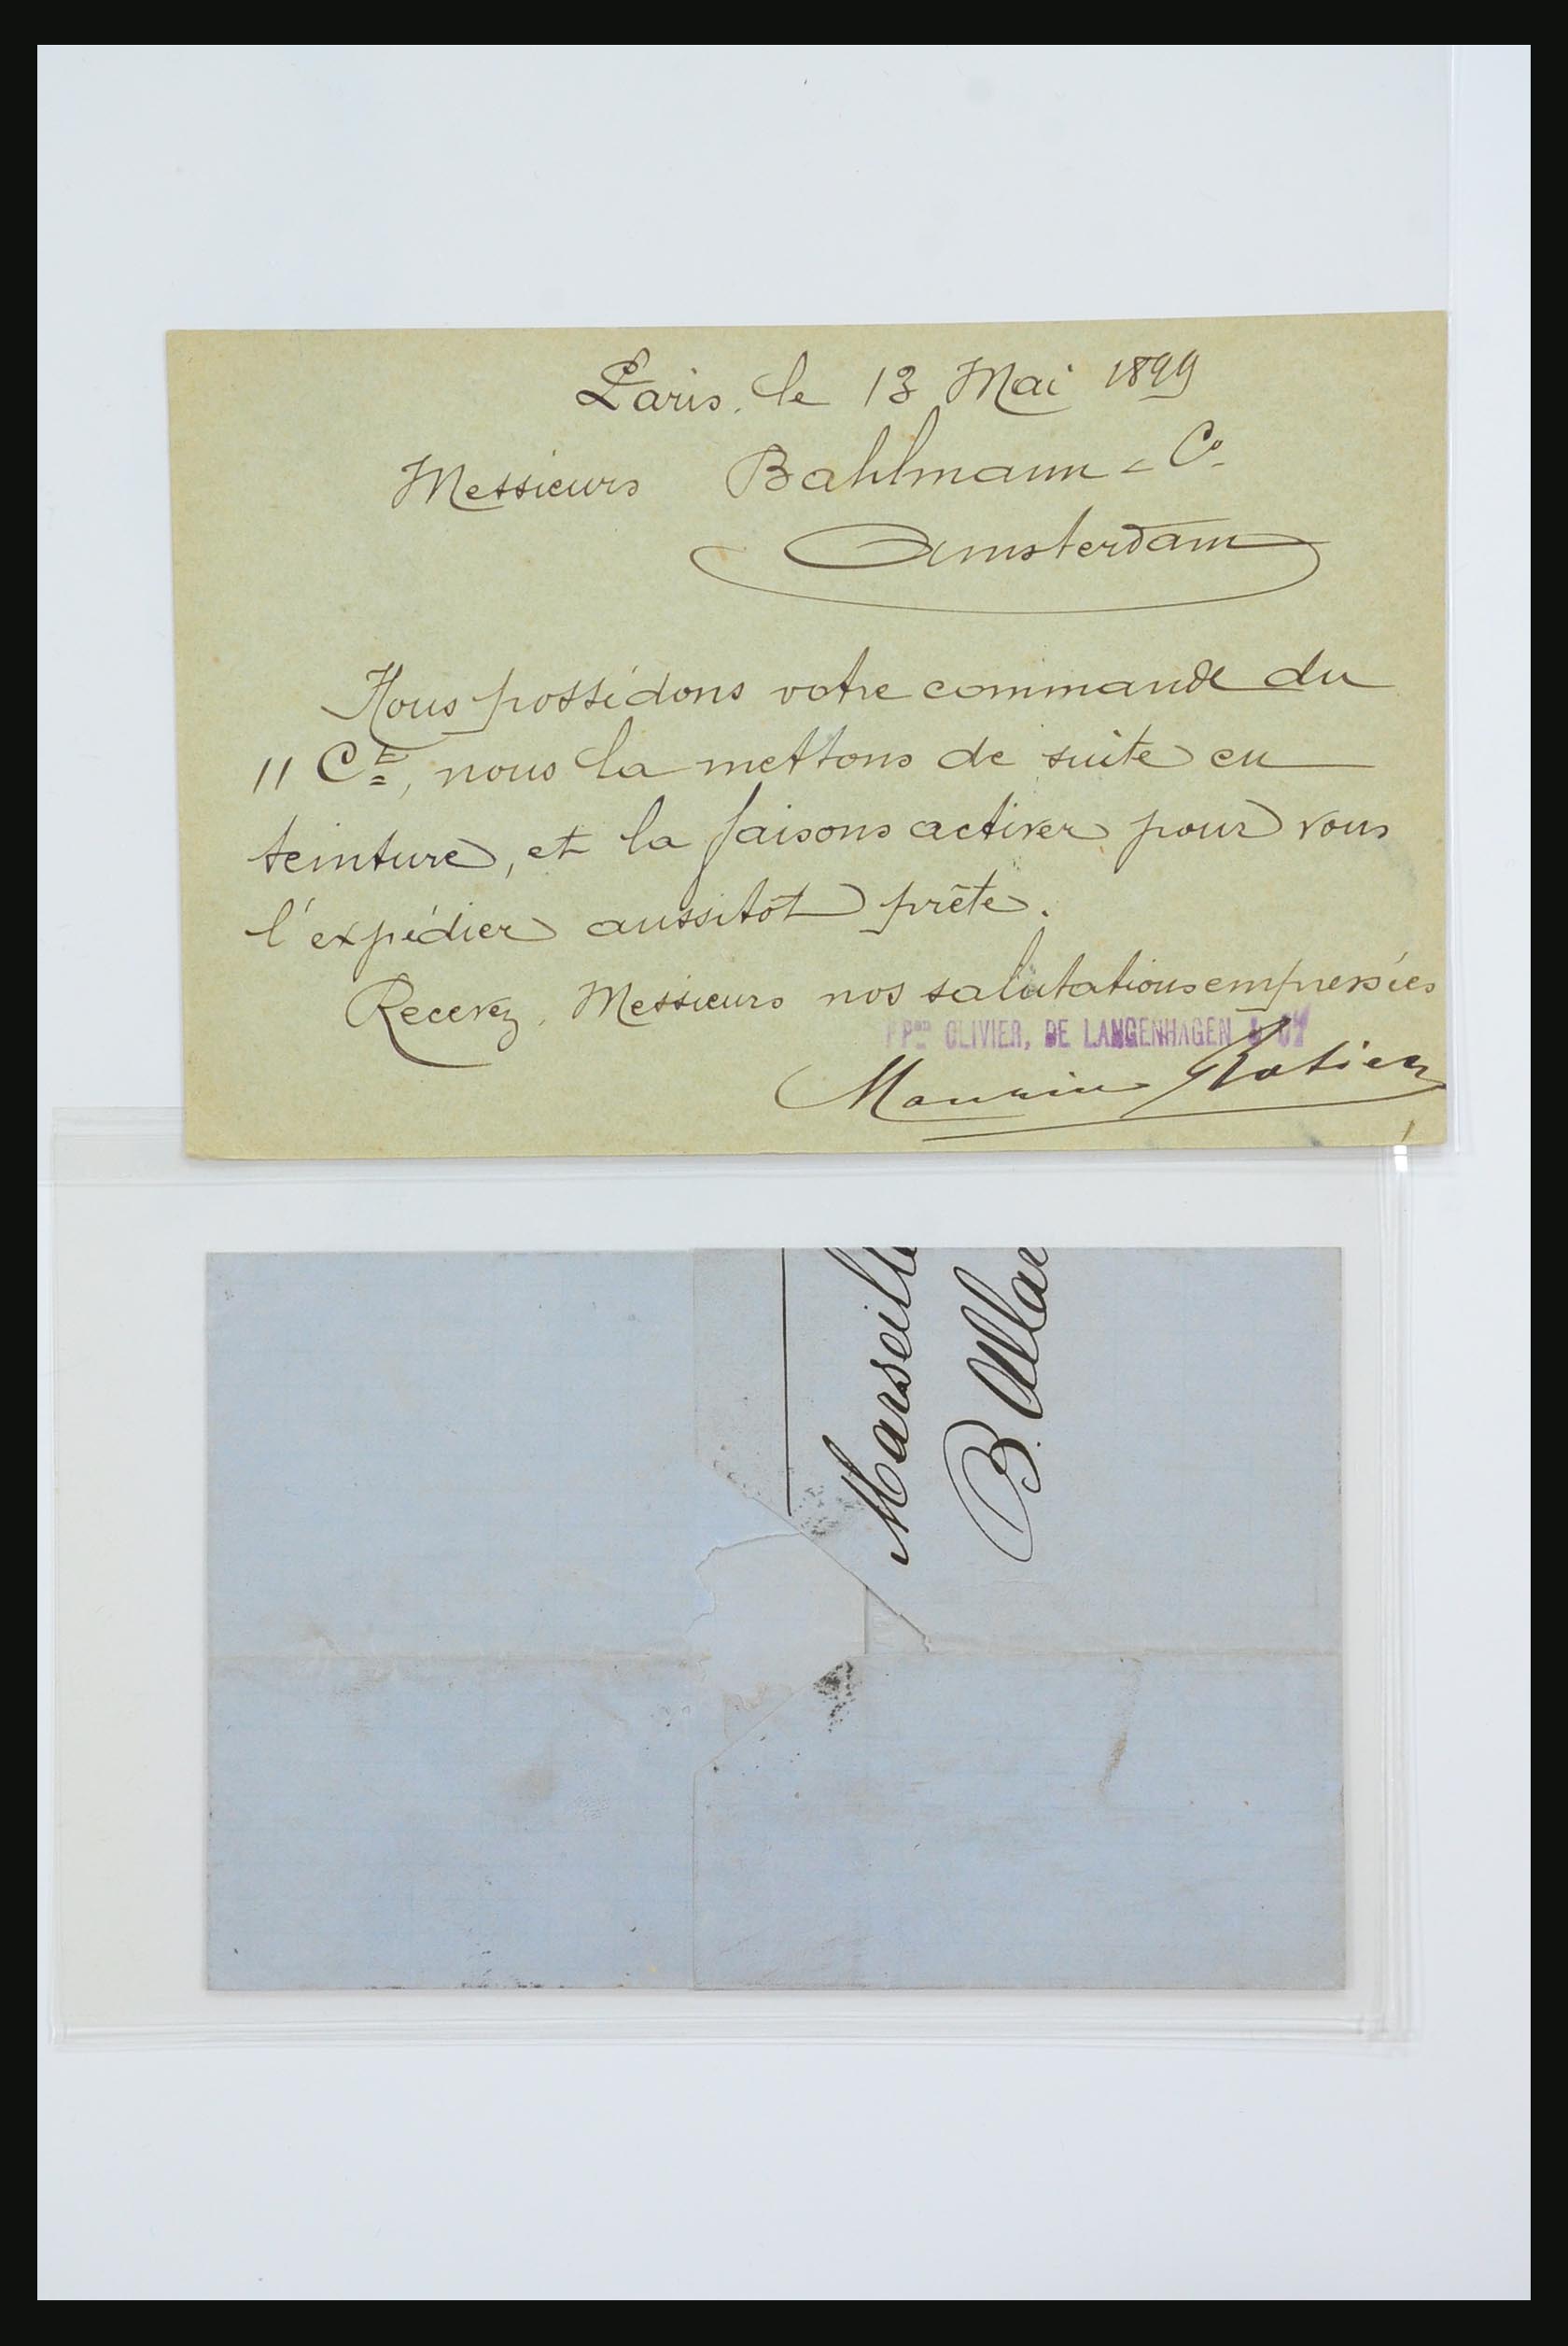 Paris, le 13 Mai 1899
Messieurs Bahlmann & Co.
Amsterdam
Nous possédons votre commande du
11 Ct, nous la mettons de suite en
teinture, et la faisons activer pour vous
l'expédier aussitôt prête.
Recevez, Messieurs nos salutations empressées
PPon OLIVIER, DE LANGENHAGEN & Cie
Marseille
B. Allar